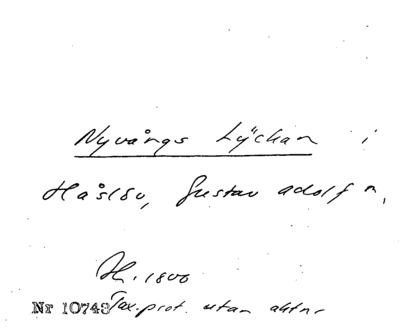 Nyvångs Lyckan i
Håslöv, Gustav Adolf n,
H. 1800
Nr 10743 Tax.prot. utan aktnr